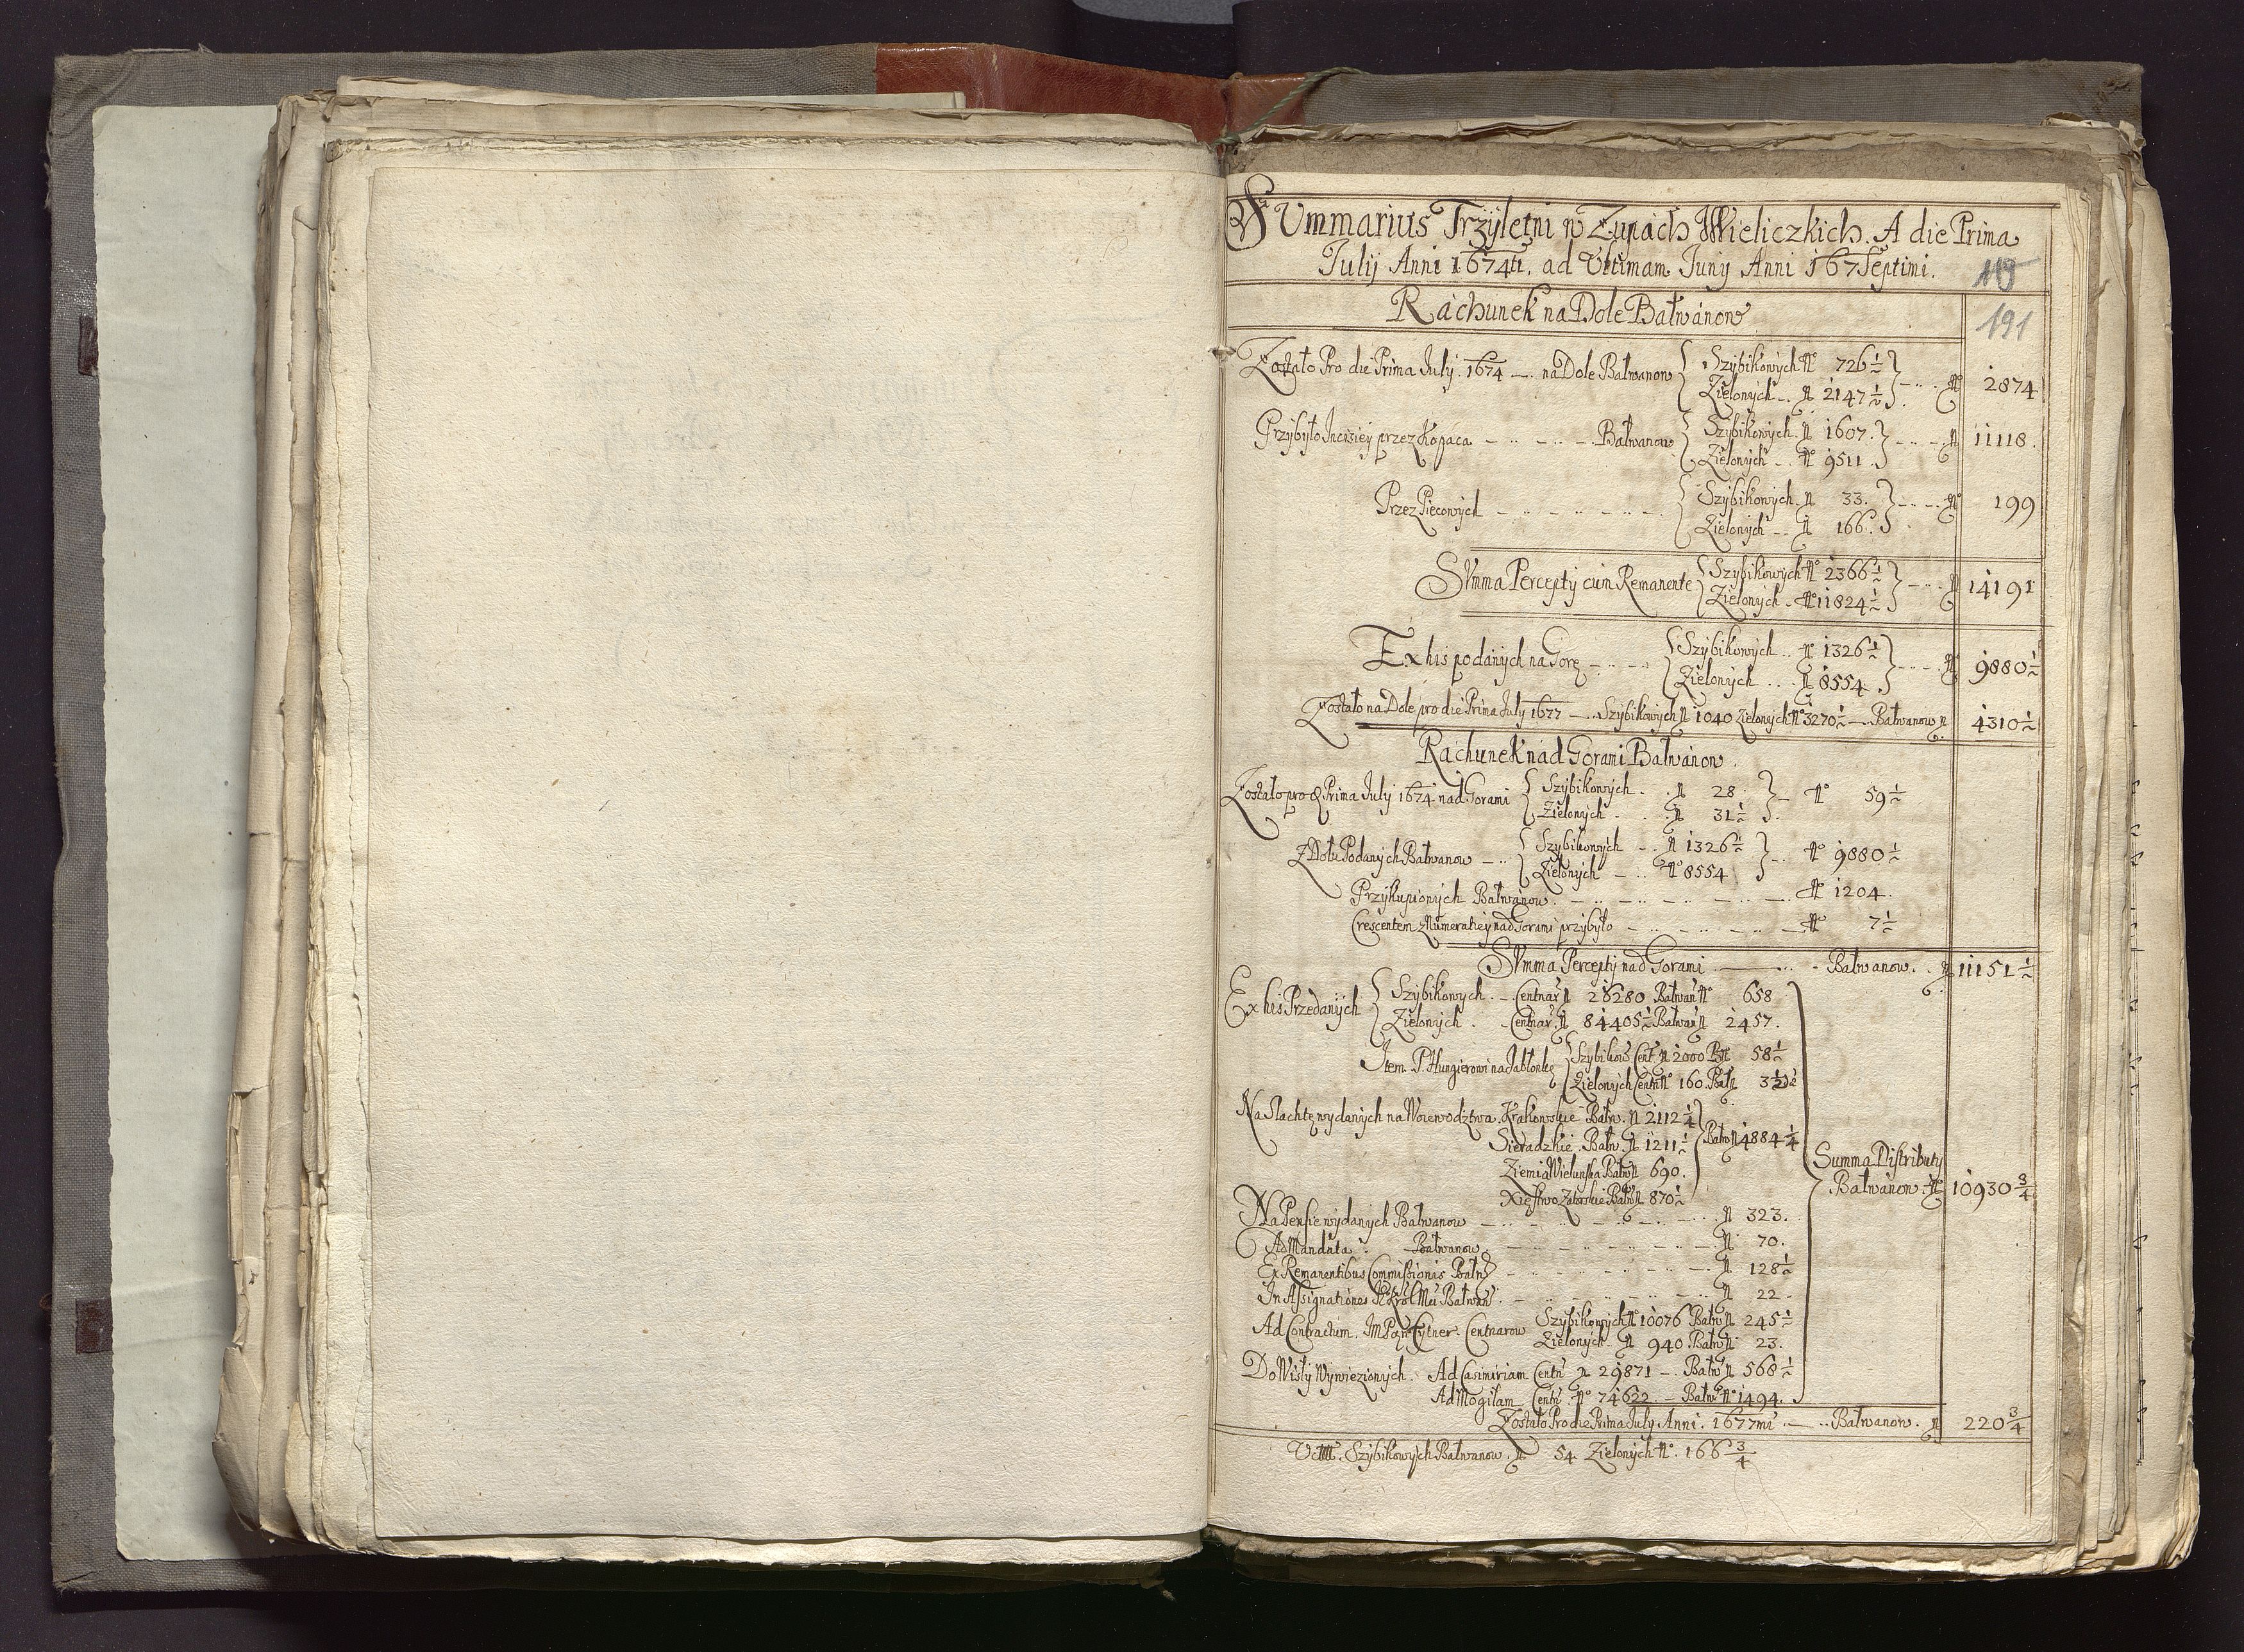 SUmmarius Trzÿletni w Zupach Wieliczkich. A die Prima
Julij Anni 1674ti. ad Ultimam Junij Anni 167Septimi.
119
191
Rachunek na Dole Bałwánow
Zostało Pro die Prima July. 1674 — na Dole Bałwanow { Szÿbikowÿch No 726½ Zielonÿch No 2147½ } No 2874
Przÿbÿło Incisieÿ przez Kopáca — Bałwanow { Szÿbikowÿch No 1607. Zielonÿch No 9511 } No 11118.
Przez Piecowÿch { Szÿbikowÿch No 33. Zielonÿch No 166. } No 199
SUmma Perceptÿ cum Remanente { Szÿbikowÿch No 2366½ Zielonÿch No 11824½ } No 14191
Ex his podánÿch na Gorę { Szÿbikowÿch No 1326½ Zielonÿch No 8554. } No 9880½
Zostało na Dole pro die Prima July 1677 — Szÿbikowÿch No 1040 Zielonÿch No 3270½ — Bałwanow No 4310½
Rachunek nád Gorami Bałwánow.
Zostało pro d. Prima July 1674 nad Gorami { Szÿbikowÿch No 28 Zielonÿch No 31½ } No 59½
Z Dołu Podanÿch Bałwanow { Szÿbikowÿch No 1326½ Zielonÿch No 8554 } No 9880½
Przÿkupionÿch Bałwánow No 1204.
Crescentem z Numeratieÿ nad Gorami przÿbÿło No 7½
SUmma Perceptÿ nad Gorami — Bałwanow. No 11151½
Ex his Przedánÿch { Szÿbikowÿch — Centnar No 26280 Bałwan No 658
Zielonÿch. Centnar. No 84405½ Bałwan No 2457.
Item. P. Hungierowi na Jabłonkę { Szÿbikow Cent No 2000 B. No 58½
Zielonÿch Centn No 160. Bał No 3½
Na Slachtę wÿdanÿch na Woiewodztwa. Krakowskie Bałw. No 2112¼
Sieradzkie. Bałw. No 1211½
Ziemia Wielunska Bałw No 690.
Xięstwo Zatorskie Bałw No 870½
} Bałw No 4884¼
Na Pensie wÿdanÿch Bałwanow No 323.
Ad Mandata. Bałwanow. No 70.
Ex Remanentibus Commissionis Bałw No 128½
In Assignationes Bałwan No 22.
Ad Contractum. Centnarow Szÿbikowÿch No 10076 Bałw No 245½
Zielonÿch. No 940. Bałw No 23.
Do Wisłÿ Wÿwiezionÿch. Ad Casimiriam Centn No 29871 — Bałw No 568½
Ad Mogilam Centn No 74622 — Bałw No 1494.
Summa Distributÿ
Bałwánow. No 10930¾
Zostało Pro die Prima July Anni. 1677mi — Bałwanow. No 220¾
Szÿbikowÿch Bałwanow. No 54 Zielonÿch No. 166¾